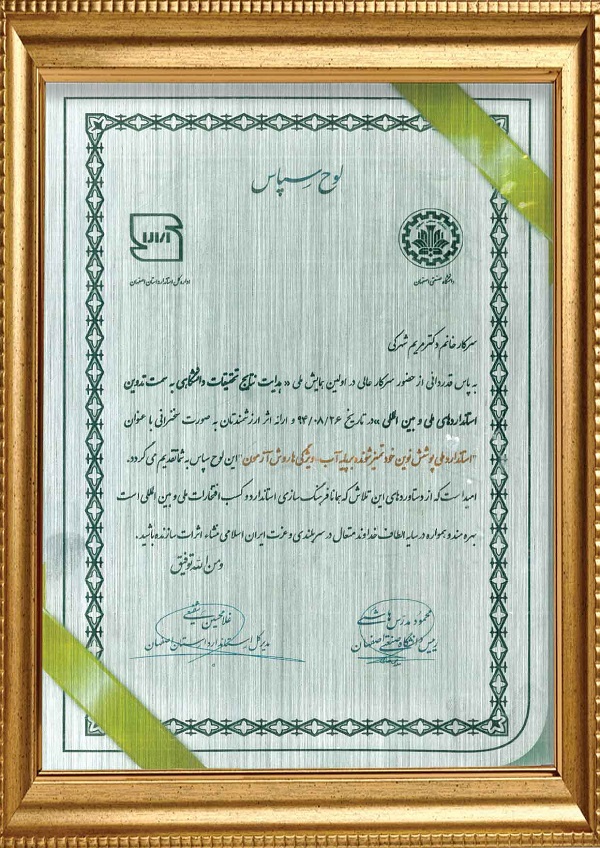 لوح سپاس
دانشگاه صنعتی اصفهان
اداره کل استاندارد استان اصفهان
سرکار خانم دکتر مریم شهرکی
به پاس قدردانی از حضور سرکار عالی در اولین همایش ملی « هدایت نتایج تحقیقات دانشگاهی به سمت تدوین
استانداردهای ملی و بین المللی » در تاریخ ۹۴/۰۸/۲۶ و ارائه اثر ارزشمندتان به صورت سخنرانی با عنوان
"استاندارد ملی پوشش نوین خود تمیز شونده بر پایه آب - ویژگی ها و روش آزمون" این لوح سپاس به شما تقدیم می گردد.
امید است که از دستاوردهای این تلاش که همانا فرهنگ سازی استاندارد و کسب افتخارات ملی و بین المللی است
بهره مند و همواره در سایه الطاف خداوند متعال در سربلندی و عزت ایران اسلامی منشاء اثرات سازنده باشید.
ومن الله توفیق
محمود مدرس هاشمی
رییس دانشگاه صنعتی اصفهان
غلامحسین شفیعی
مدیر کل استاندارد استان اصفهان